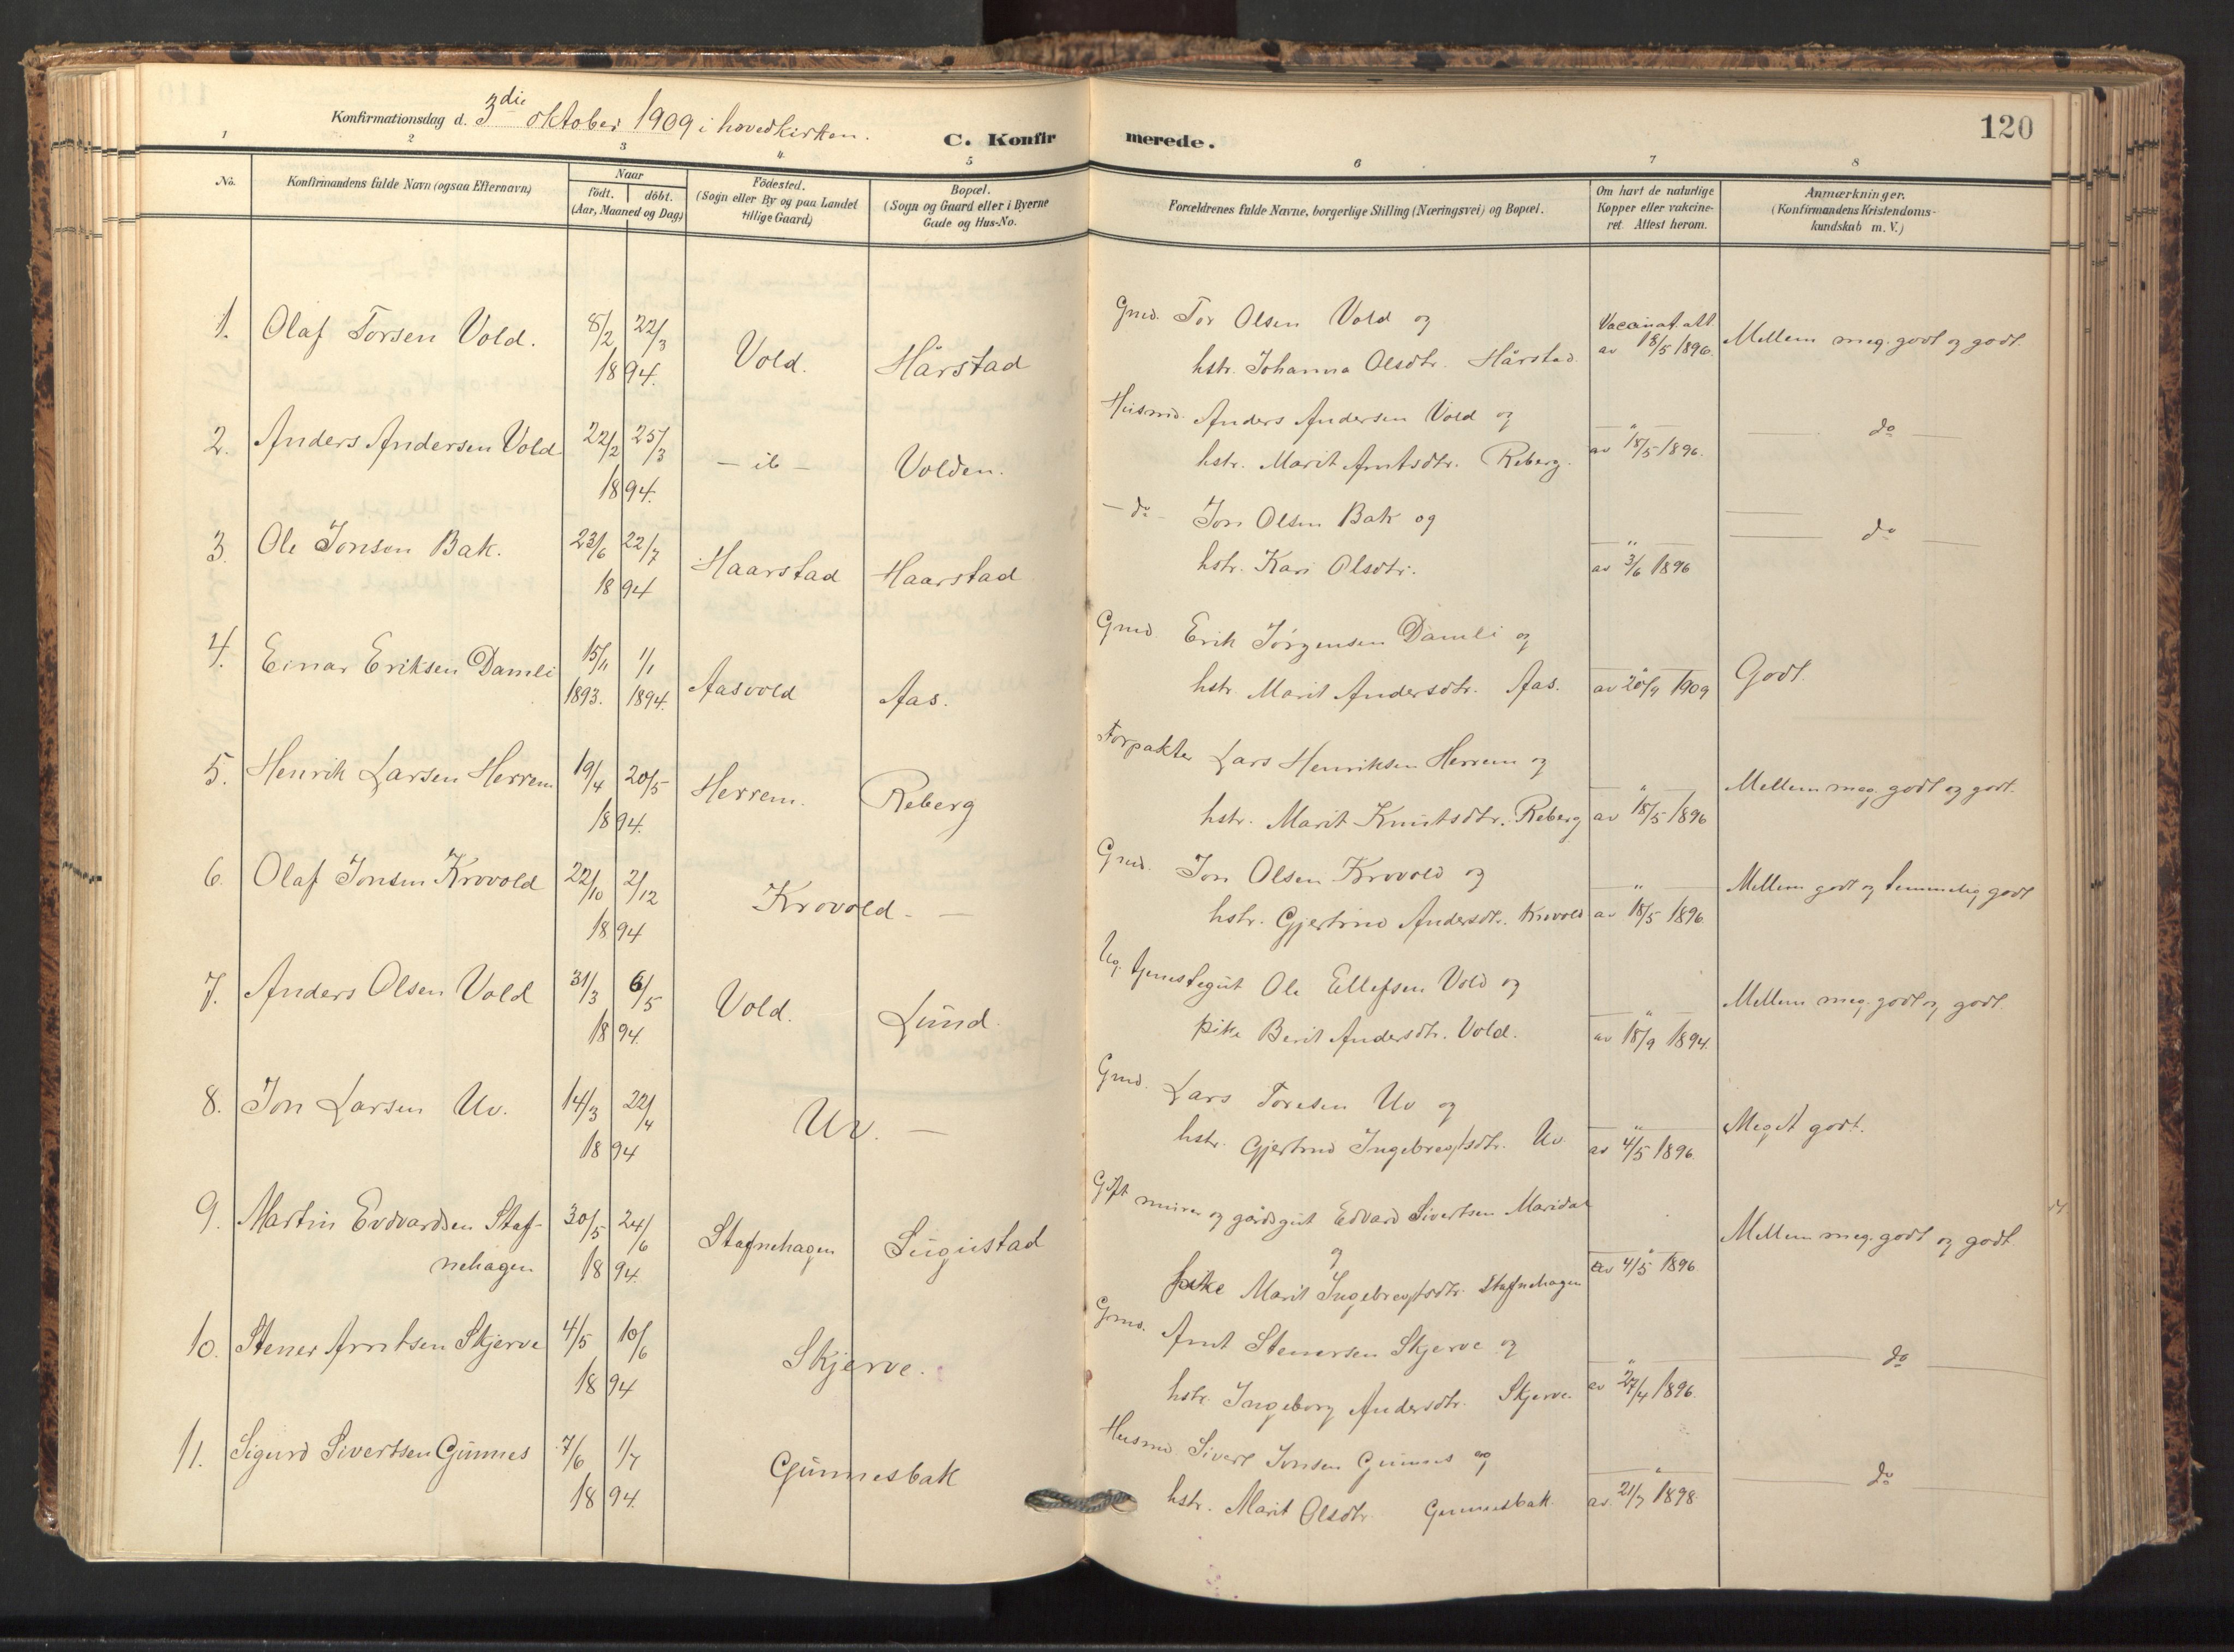 Konfirmationsdag d. 3die oktober 1909 i hovedkirken.
C. Konfirmerede.
120
1 2 3 4 5 6 7 8
No.
Konfirmandens fulde Navn (ogsaa Efternavn)
Naar
födt. döbt.
(Aar, Maaned og Dag)
Födested.
(Sogn eller By og paa Landet
tillige Gaard)
Bopæl.
(Sogn og Gaard eller i Byerne
Gade og Hus-No.
Forældrenes fulde Navne, borgerlige Stilling (Næringsvei) og Bopæl.
Om havt de naturlige
Kopper eller vakcine-
ret. Attest herom.
Anmærkninger.
(Konfirmandens Kristendoms-
kundskab m. V.)
1. Olaf Torsen Vold. 8/2 22/3
1894.
Vold. Hårstad
Gmd. Tor Olsen Vold og
hstr. Johanna Olsdtr. Hårstad.
Vaccinat. att.
av 18/5 1896.
Mellem meg. godt og godt.
2. Anders Andersen Vold 22/2 25/3
1894.
— ib — Volden.
Husmd. Anders Andersen Vold og
hstr. Marit Arntsdtr. Reberg.
— " —
av 18/5 1896.
— do —
3. Ole Jonsen Bak. 23/6 22/7
1894
Haarstad Haarstad
— do — Jon Olsen Bak og
hstr. Kari Olsdtr.
— " —
av 3/6 1896
— do —
4. Einar Eriksen Damli 15/11 1/1
1893. 1894.
Aasvold Aas.
Gmd. Erik Jörgensen Damli og
hstr. Marit Andersdtr. Aas.
av 20/9 1909
Godt.
5. Henrik Larsen Herrem 19/4 20/5
1894.
Herrem. Reberg
Forpakter Lars Henriksen Herrem og
hstr. Marit Knutsdtr. Reberg
— " —
av 18/5 1896
Mellem meg. godt og godt.
6. Olaf Jonsen Krovold 22/10 2/12
1894
Krovold —
Gmd. Jon Olsen Krovold og
hstr. Gjertrud Andersdtr. Krovold
— " —
av 18/5 1896.
Mellem godt og temmelig godt
7. Anders Olsen Vold 31/3 6/5
1894.
Vold. Lund.
Ug. tjenestegut Ole Ellefsen Vold og
pike Berit Andersdtr. Vold.
— " —
av 18/9 1894.
Mellem meg. godt og godt.
8. Jon Larsen Uv. 14/3 22/4
1894
Uv. —
Gmd. Lars Toresen Uv og
hstr. Gjertrud Ingebregtsdtr. Uv.
— " —
av 4/5 1896.
Meget godt.
9. Martin Edvardsen Staf-
nehagen
30/5 24/6
1894.
Stafnehagen Sugustad
Gift murer og gårdsgut Edvard Sivertsen Maridal
og
pike Marit Ingebregtsdtr. Stafnehagen
— " —
av 4/5 1896.
Mellem meg. godt og godt.
10. Stener Arntsen Skjerve 4/5 10/6
1894
Skjerve.
Gmd. Arnt Stenersen Skjerve og
hstr. Ingeborg Andersdtr. Skjerve.
— " —
av 27/4 1896.
— do —
11. Sigurd Sivertsen Gunnes 7/6 1/7
1894.
Gunnesbak
Husmd. Sivert Jonsen Gunnes og
hstr. Marit Olsdtr. Gunnesbak.
— " —
av. 21/7 1898.
— do —